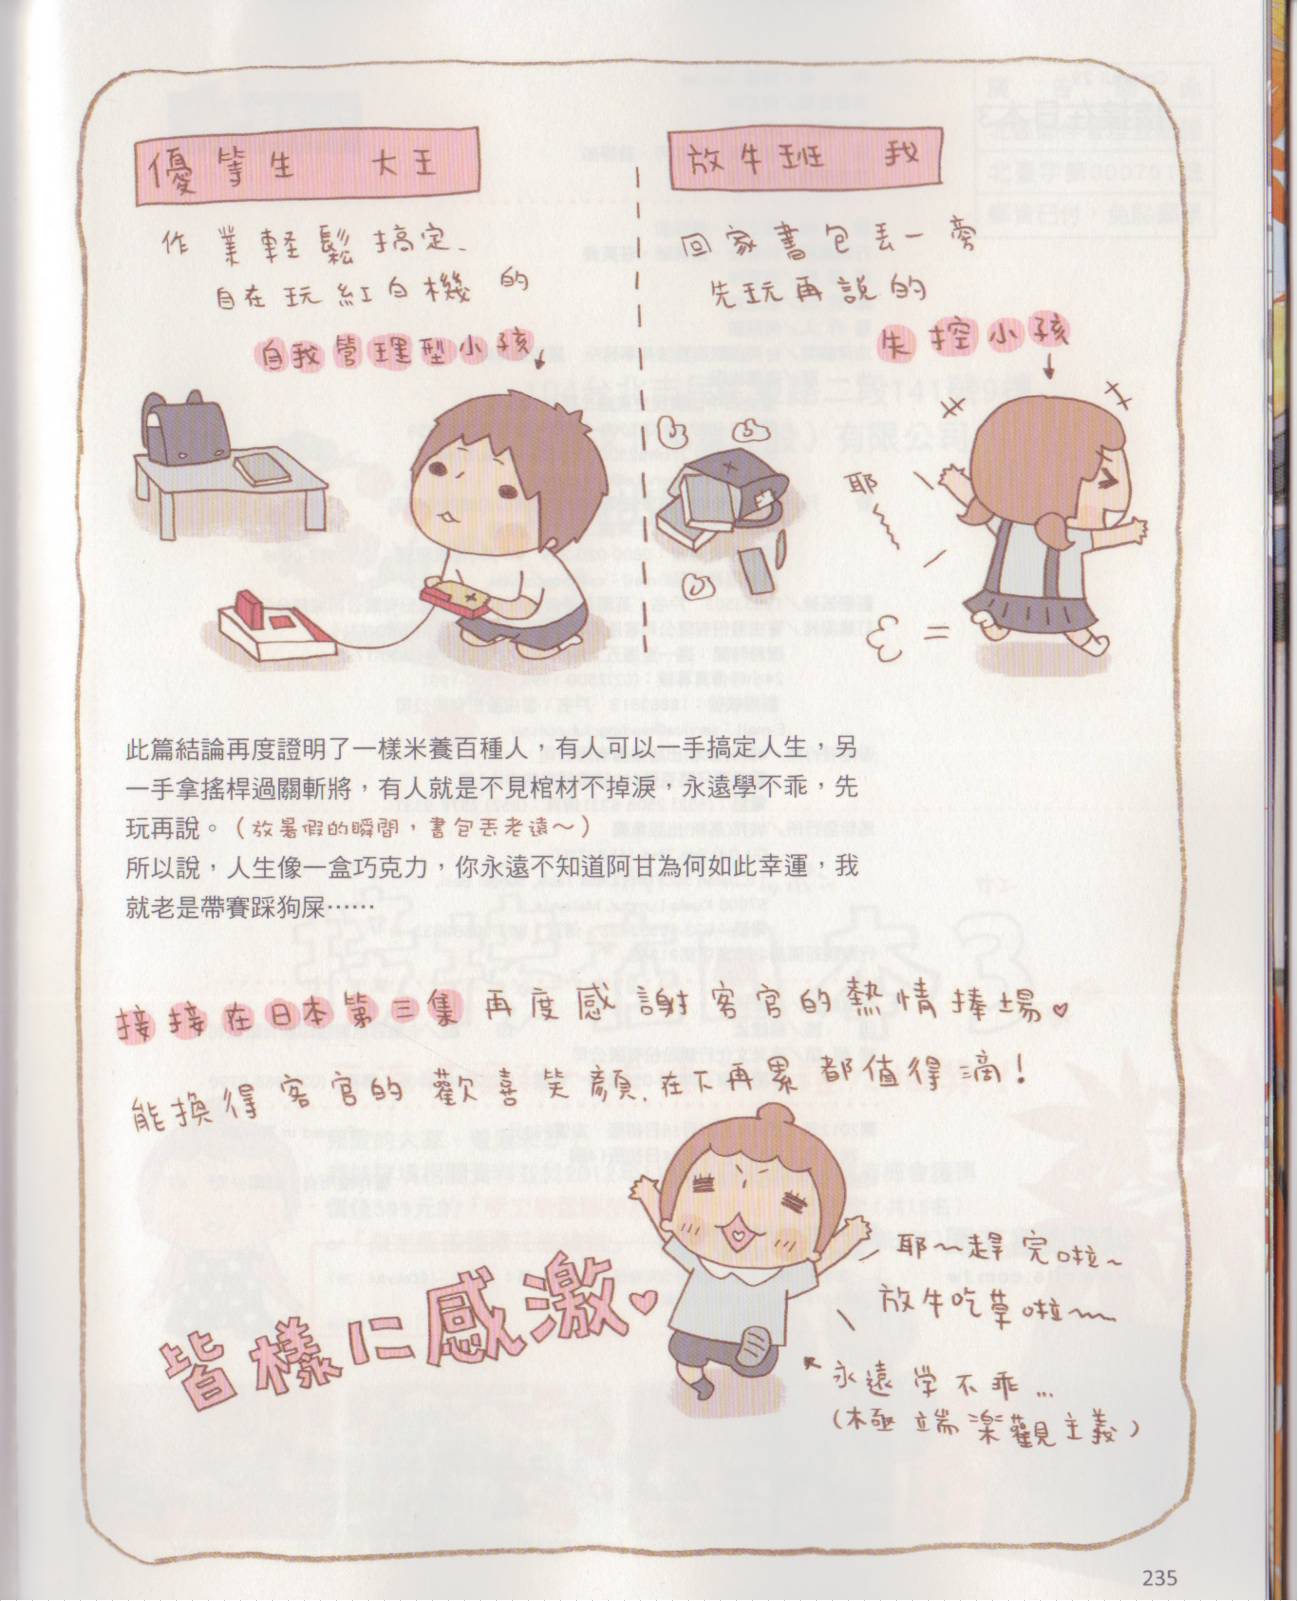 優等生 大王
作業輕鬆搞定、
自在玩紅白機的
自我管理型小孩
放牛班 我
回家書包丟一旁
先玩再說的
失控小孩
耶
此篇結論再度證明了一樣米養百種人，有人可以一手搞定人生，另
一手拿搖桿過關斬將，有人就是不見棺材不掉淚，永遠學不乖，先
玩再說。（放暑假的瞬間，書包丟老遠～）
所以說，人生像一盒巧克力，你永遠不知道阿甘為何如此幸運，我
就老是帶賽踩狗屎……
接接在日本第三集再度感謝客官的熱情捧場♥
能換得客官的歡喜笑顏、在下再累都值得滴！
皆樣に感激♥
耶～趕完啦～
放牛吃草啦～
永遠学不乖…
（極端楽觀主義）
235